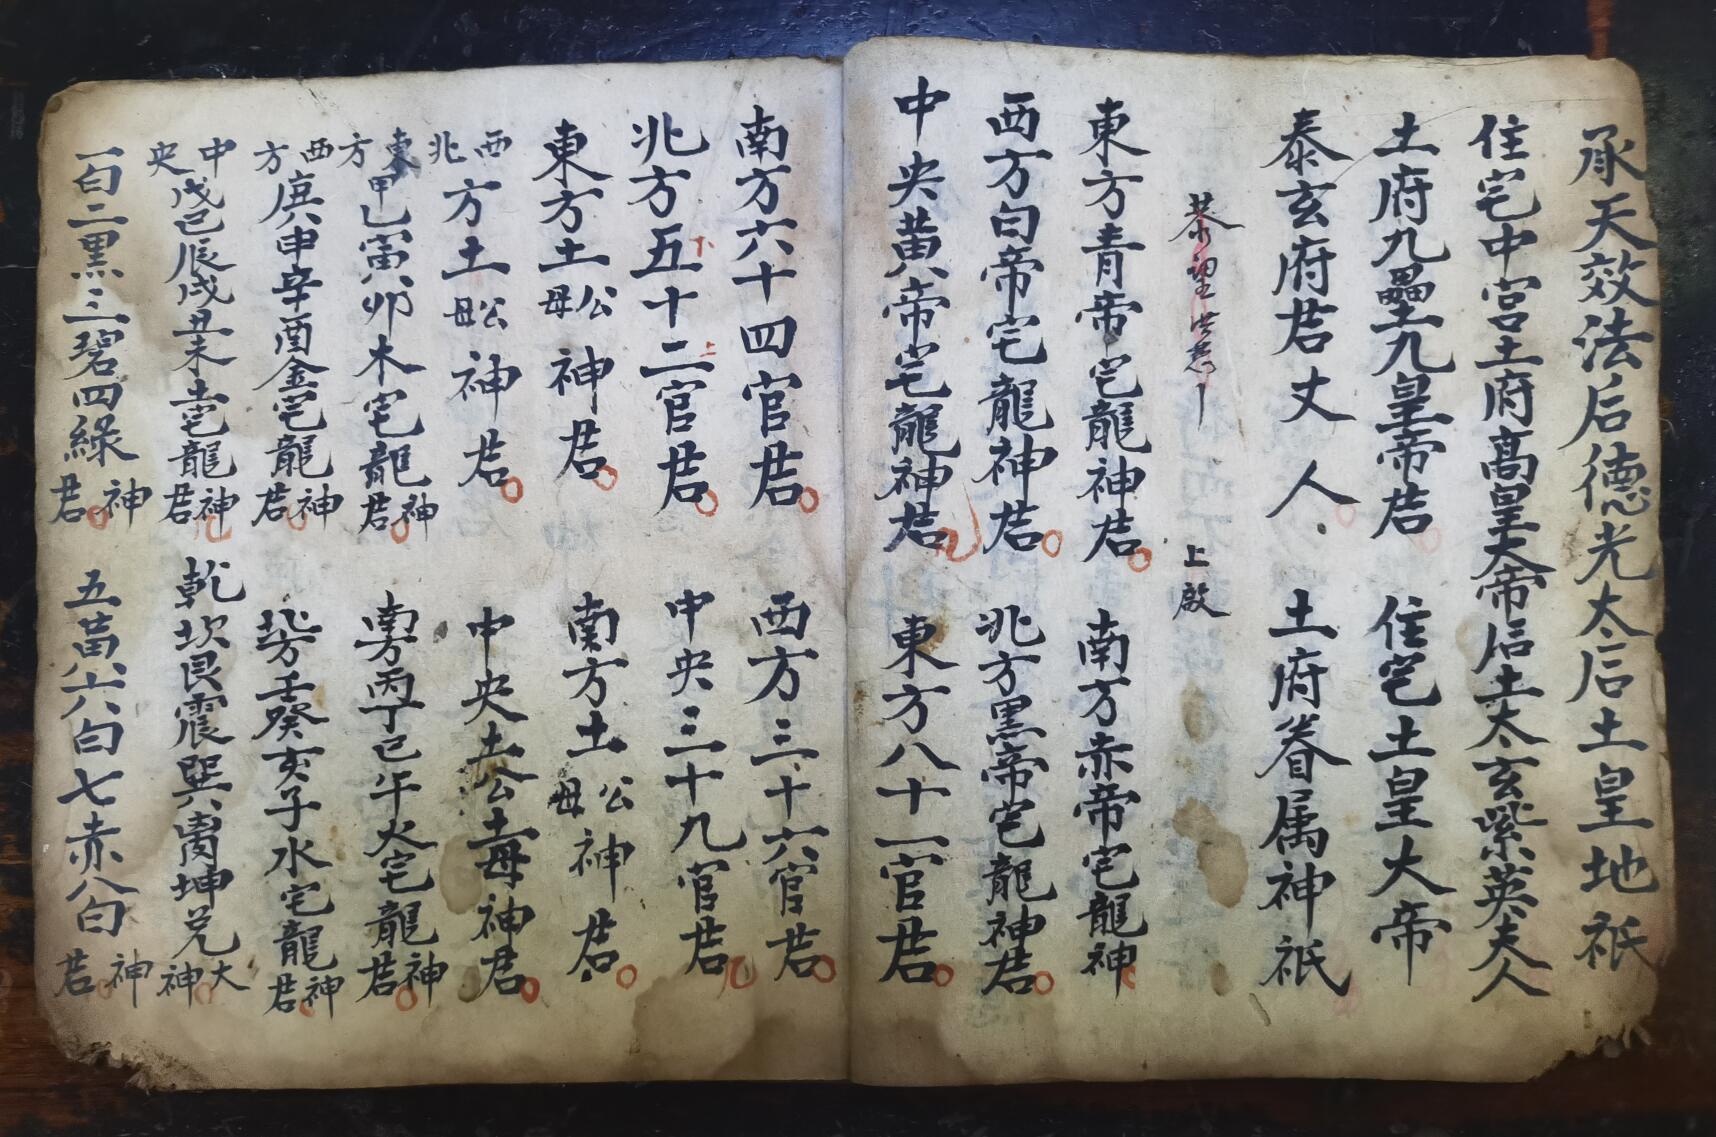 承天效法后德光太后土皇地祇
住宅中宮土府高皇大帝后土太玄紫英夫人
土府九壘土九皇帝君 住宅土皇大帝
泰玄府君丈人 土府眷属神祇
恭望洪慈 上啟
東方青帝宅龍神君 南方赤帝宅龍神
西方白帝宅龍神君 北方黑帝宅龍神君
中央黄帝宅龍神君 東方八十一官君
南方六十四官君 西方三十六官君
北方五十二官君 中央三十九官君
下 上
東方土公母神君 南方土公母神君
西北方土公母神君 中央土公土母神君
東方甲乙寅卯木宅龍神君 南方丙丁巳午火宅龍神君
西方庚申辛酉金宅龍神君 北方壬癸亥子水宅龍神君
中央戊己辰戌丑未土宅龍神君 乾坎艮震巽离坤兑大神
一白二黑三碧四綠神君 五黃六白七赤八白神君